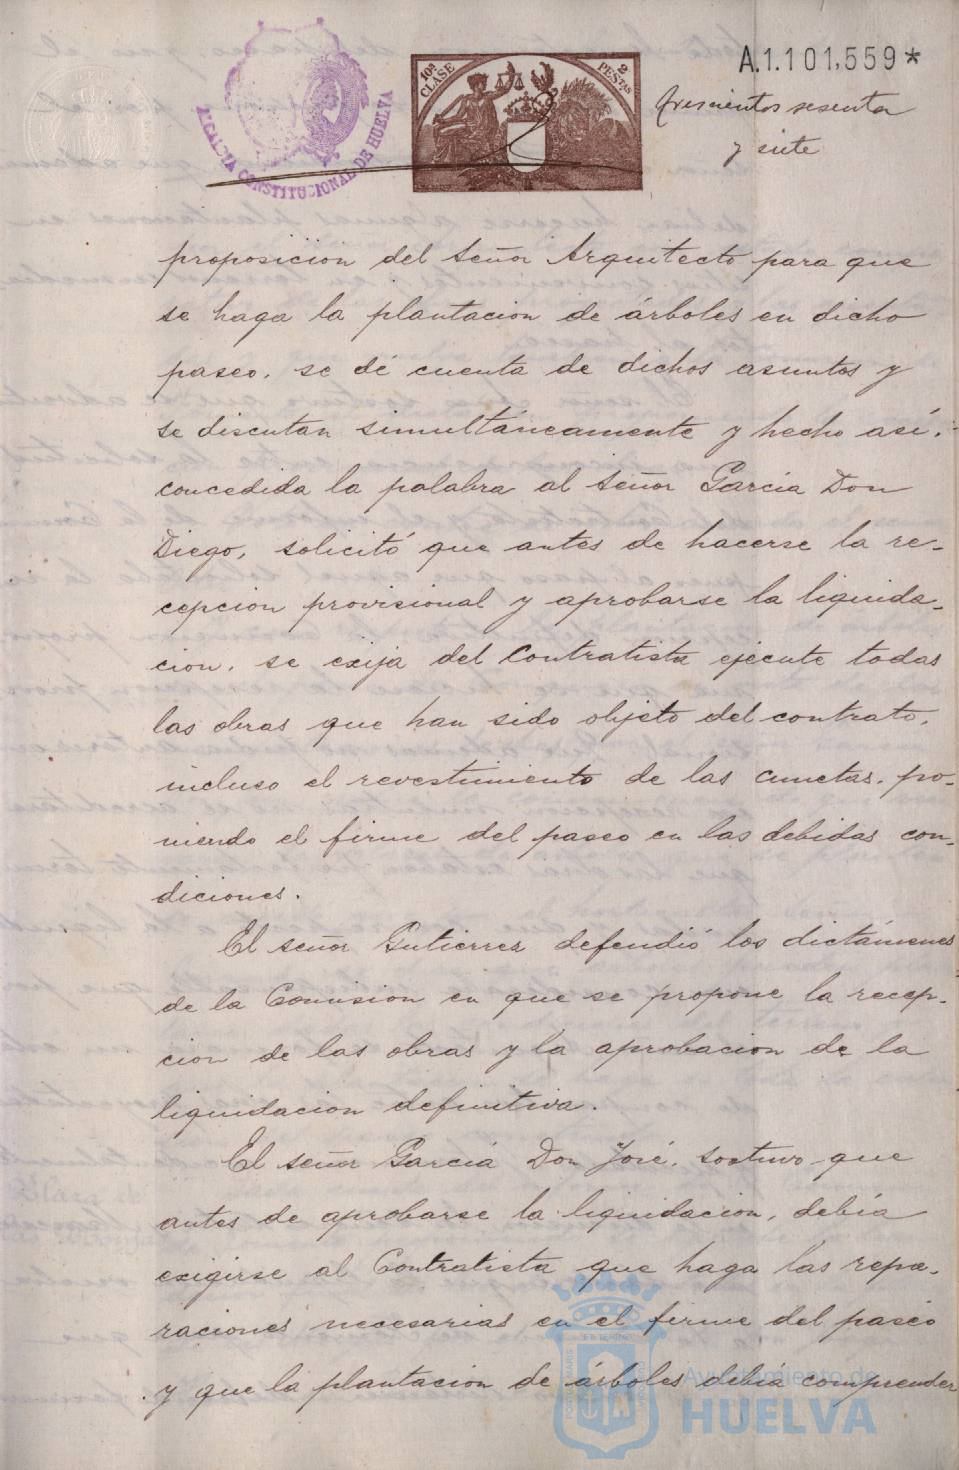 A.1.101,559*
ALCALDIA CONSTITUCIONAL DE HUELVA
10ª CLASE
2 PESTAS
Trescientos sesenta
y siete
proposicion del Señor Arquitecto para que
se haga la plantacion de árboles en dicho
paseo, se dé cuenta de dichos asuntos y
se discutan simultáneamente y hecho así,
concedida la palabra al Señor García Don
Diego, solicitó que antes de hacerse la re-
cepcion provisional y aprobarse la liquida-
cion, se exija del Contratista ejecute todas
las obras que han sido objeto del contrato,
incluso el revestimiento de las cunetas, po-
niendo el firme del paseo en las debidas con-
diciones.
El señor Gutierrez defendió los dictámenes
de la Comision en que se propone la recep-
cion de las obras y la aprobacion de la
liquidacion definitiva.
El señor García Don José, sostuvo que
antes de aprobarse la liquidacion, debía
exigirse al Contratista que haga las repa-
raciones necesarias en el firme del paseo
y que la plantacion de árboles debía comprender
Ayuntamiento de
HUELVA